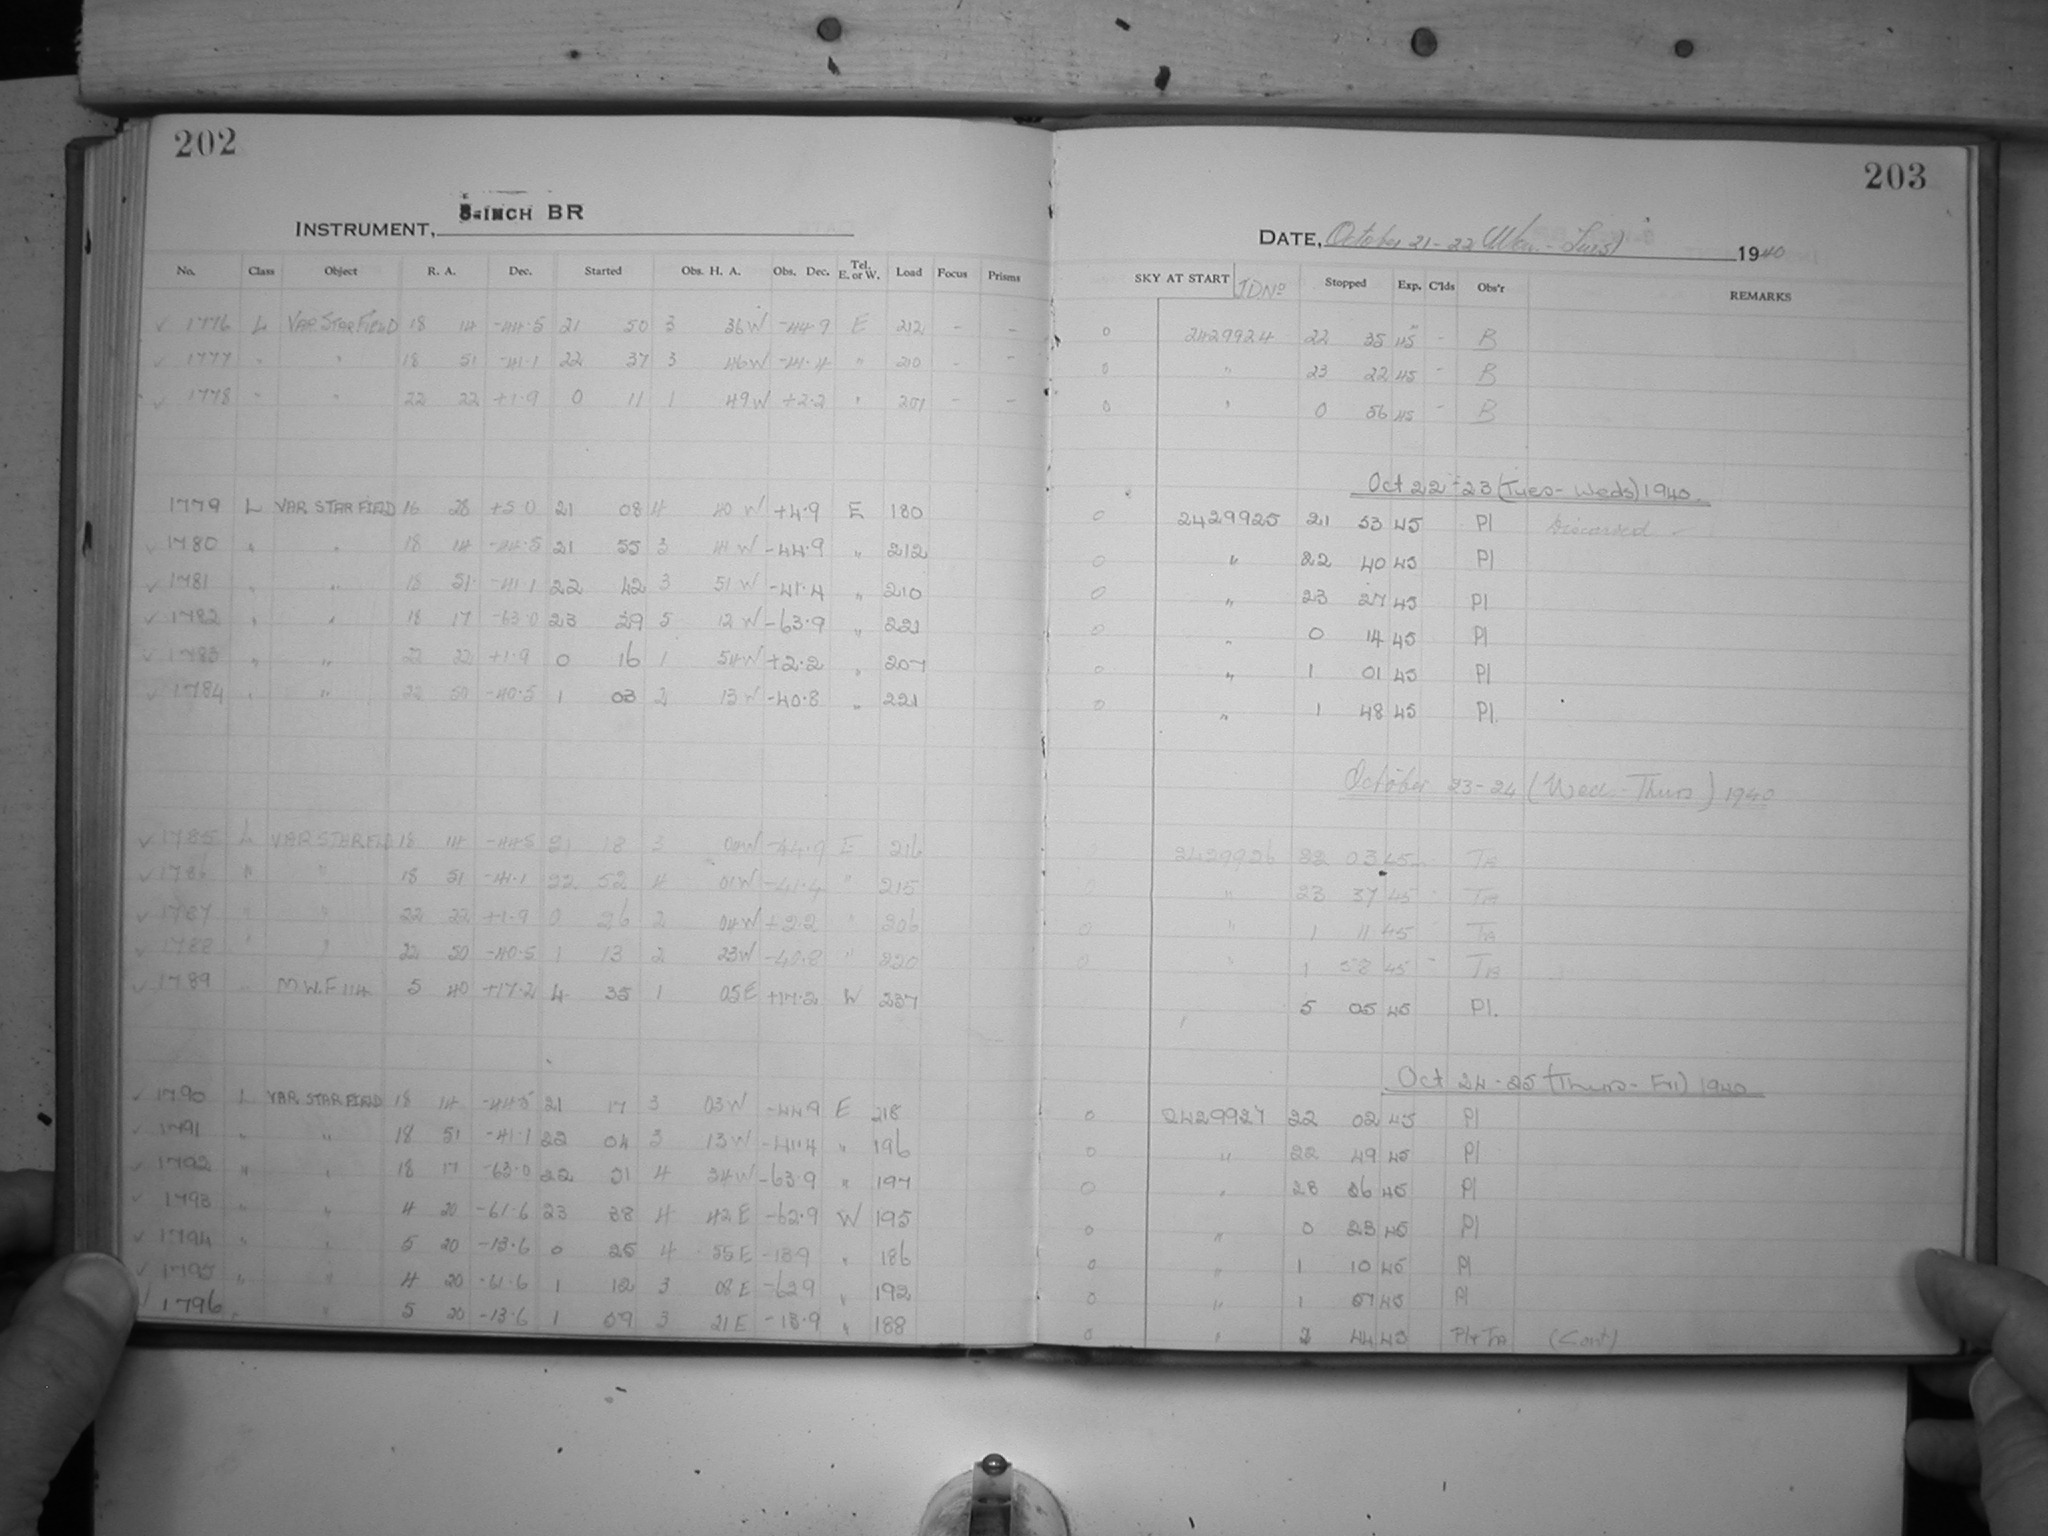 202
203
INSTRUMENT, 8-INCH BR
DATE, October 21-22 (Mon. - Tues) 1940
No. Class Object R. A. Dec. Started Obs. H. A. Obs. Dec. Tel. E. or W. Load Focus Prisms SKY AT START JD No Stopped Exp. C'lds Obs'r REMARKS
✓ 1776 L VAR STAR FIELD 18 14 -44.5 21 50 3 36W -44.9 E 212 - - 0 2429924 22 35 45 - B
✓ 1777 " " 18 51 -41.1 22 37 3 46W -41.4 " 210 - - 0 " 23 22 45 - B
✓ 1778 " " 22 22 +1.9 0 11 1 49W +2.2 " 201 - - 0 " 0 56 45 - B
Oct 22-23 (Tues-Weds) 1940.
1779 L VAR STAR FIELD 16 28 +5.0 21 08 4 40 W +4.9 E 180 0 2429925 21 53 45 Pl Discarded
✓ 1780 " " 18 14 -44.5 21 55 3 41 W -44.9 " 212 0 " 22 40 45 Pl
✓ 1781 " " 18 51 -41.1 22 42 3 51 W -41.4 " 210 0 " 23 27 45 Pl
✓ 1782 " " 18 17 -63.0 23 29 5 12 W -63.9 " 221 0 " 0 14 45 Pl
✓ 1783 " " 22 22 +1.9 0 16 1 54W +2.2 " 207 0 " 1 01 45 Pl
✓ 1784 " " 22 50 -40.5 1 03 2 13W -40.8 " 221 0 " 1 48 45 Pl.
October 23-24 (Wed - Thurs) 1940
✓ 1785 L VAR STAR FIELD 18 14 -44.5 21 18 3 W -44.9 E 216 2429926 22 03 45 - TA
✓ 1786 " " 18 51 -41.1 22 52 4 01W -41.4 " 215 0 " 23 37 45 - TA
✓ 1787 " " 22 22 +1.9 0 26 2 04W +2.2 " 206 0 " 1 11 45 - TA
✓ 1788 " " 22 50 -40.5 1 13 2 23W -40.8 " 220 0 " 1 58 45 - TA
✓ 1789 M.W.F 114 5 40 +17.2 4 35 1 05E +17.2 W 237 5 05 45 Pl.
Oct 24-25 (Thurs-Fri) 1940
✓ 1790 L VAR STAR FIELD 18 14 -44.5 21 17 3 03W -44.9 E 218 0 2429927 22 02 45 Pl
✓ 1791 " " 18 51 -41.1 22 04 3 13W -41.4 " 196 0 " 22 49 45 Pl
✓ 1792 " " 18 17 -63.0 22 51 4 34W -63.9 " 197 0 " 23 36 45 Pl
✓ 1793 " " 4 20 -61.6 23 38 4 42E -62.9 W 195 0 " 0 23 45 Pl
✓ 1794 " " 5 20 -13.6 0 25 4 55E -13.9 " 186 0 " 1 10 45 Pl
✓ 1795 " " 4 20 -61.6 1 12 3 08E -62.9 " 192 0 " 1 57 45 Pl
✓ 1796 " " 5 20 -13.6 1 09 3 21E -13.9 " 188 0 " 2 44 45 Pl+TA (Cont)